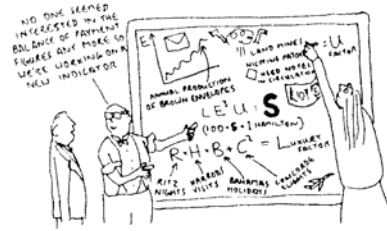 NO ONE SEEMED
INTERESTED IN THE
BALANCE OF PAYMENT
FIGURES ANY MORE SO
WE'RE WORKING ON A
NEW INDICATOR
E
ANNUAL PRODUCTION
OF BROWN ENVELOPES
LAND MINES
USED NOTES
IN CIRCULATION
= U
FACTOR
LE³U = S
(100 S = 1 HAMILTON)
R + H + B + C = LUXURY
FACTOR
RITZ
NIGHTS
HARRODS
VISITS
BAHAMAS
HOLIDAYS
CONCORDE
FLIGHTS